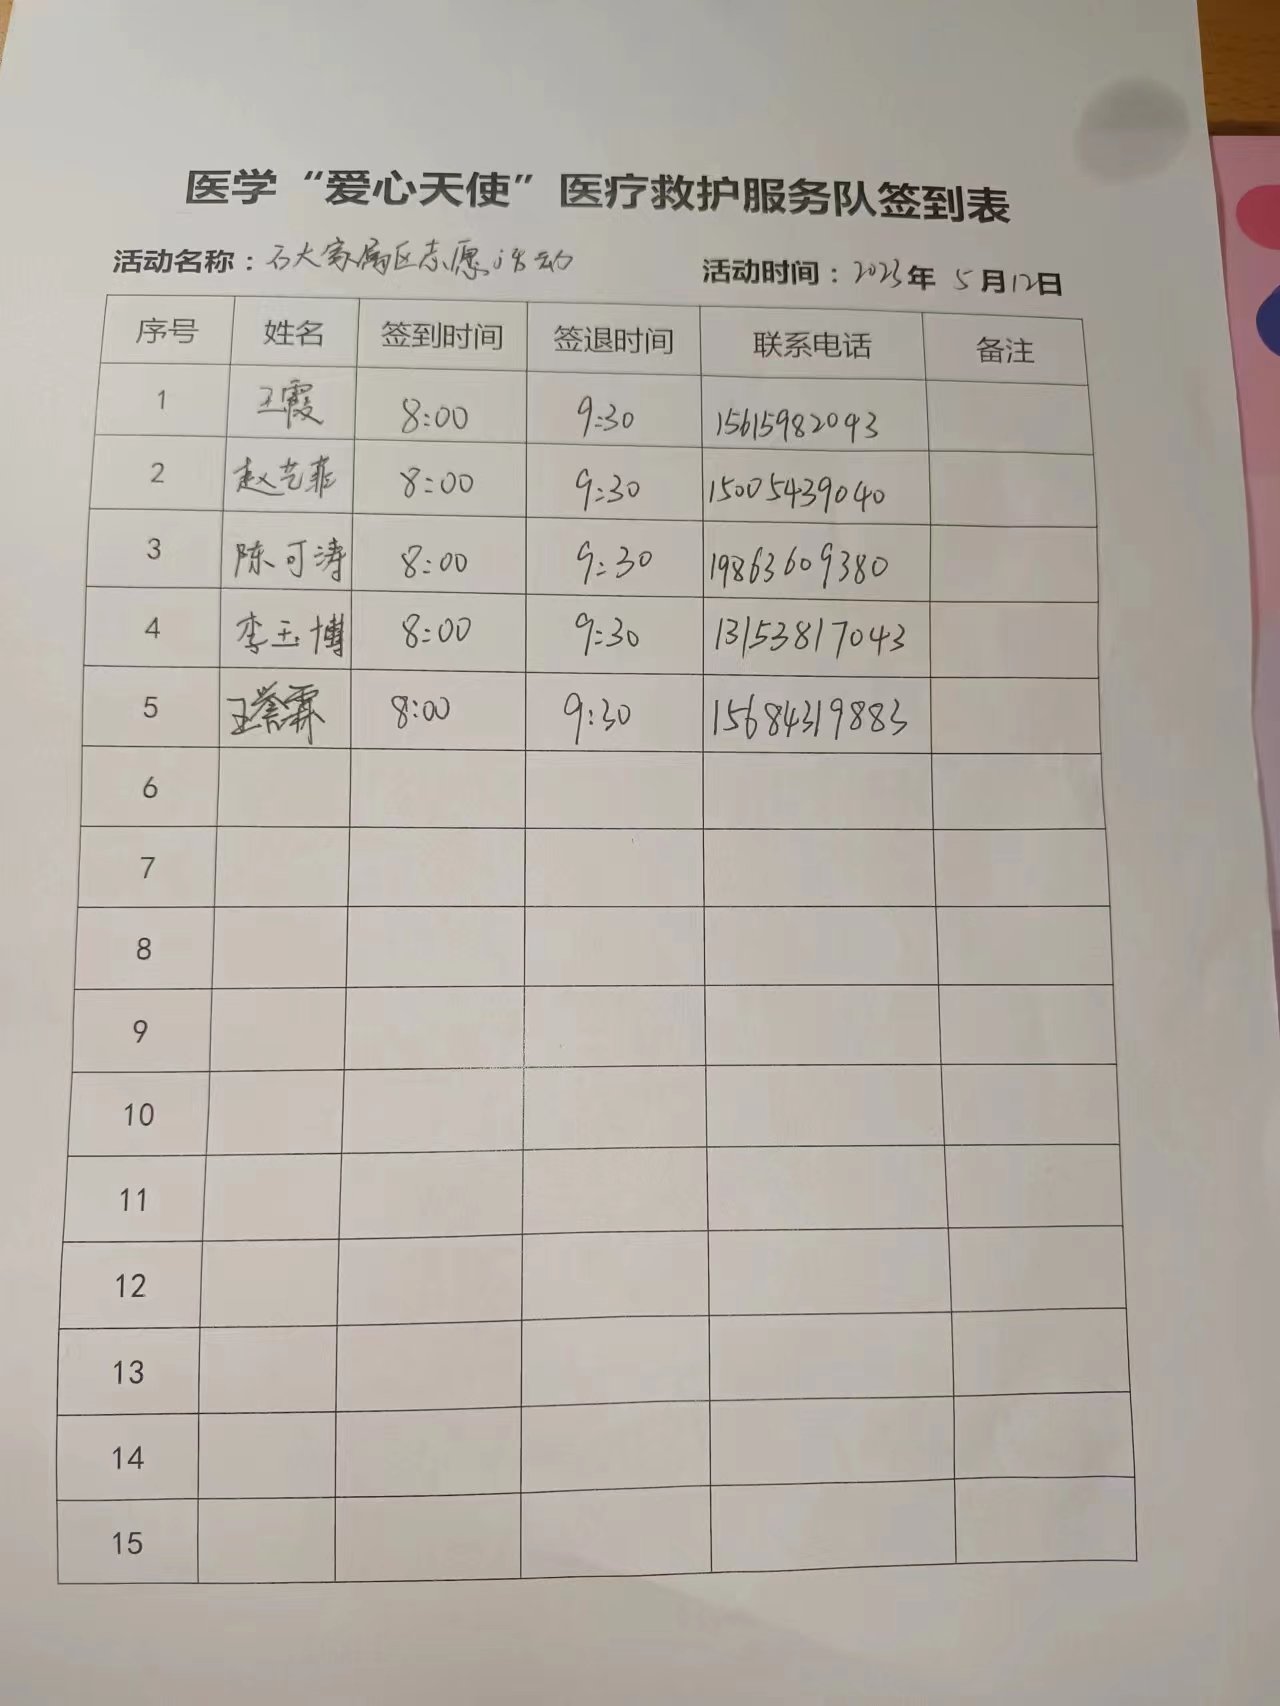 医学“爱心天使”医疗救护服务队签到表
活动名称：石大家属区志愿活动 活动时间：2023年 5月12日
序号 姓名 签到时间 签退时间 联系电话 备注
1 王霞 8:00 9:30 15615982093
2 赵艺菲 8:00 9:30 15005439040
3 陈可涛 8:00 9:30 19863609380
4 李玉博 8:00 9:30 13153817043
5 王誉霖 8:00 9:30 15684319883
6
7
8
9
10
11
12
13
14
15